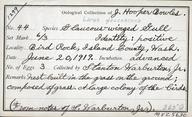 Oological Collection of J. Hooper Bowles
No. 44 Name Glaucous-winged Gull
Set Mark 6/3 Identity: positive
Locality Bird Rock, Island County, Wash.
Date June 20, 1919. Incubation advanced.
No. of Eggs 3 Collected by Stanton Warburton, Jr.
Remarks Nest built in the grass on the ground;
composed of grass. A large colony of the birds.
(From notes of S. Warburton, Jr.)